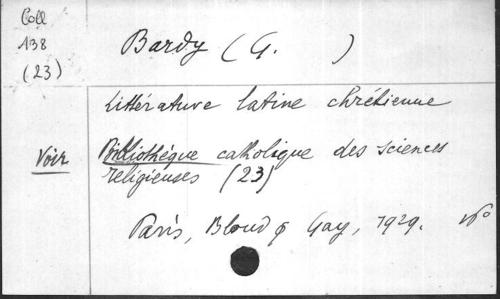 Coll
138
(23)
Bardy (G. )
Littérature latine chrétienne
Voir
Bibliothéque catholique des sciences
religieuses (23)
Paris, Bloud & Gay, 1929.